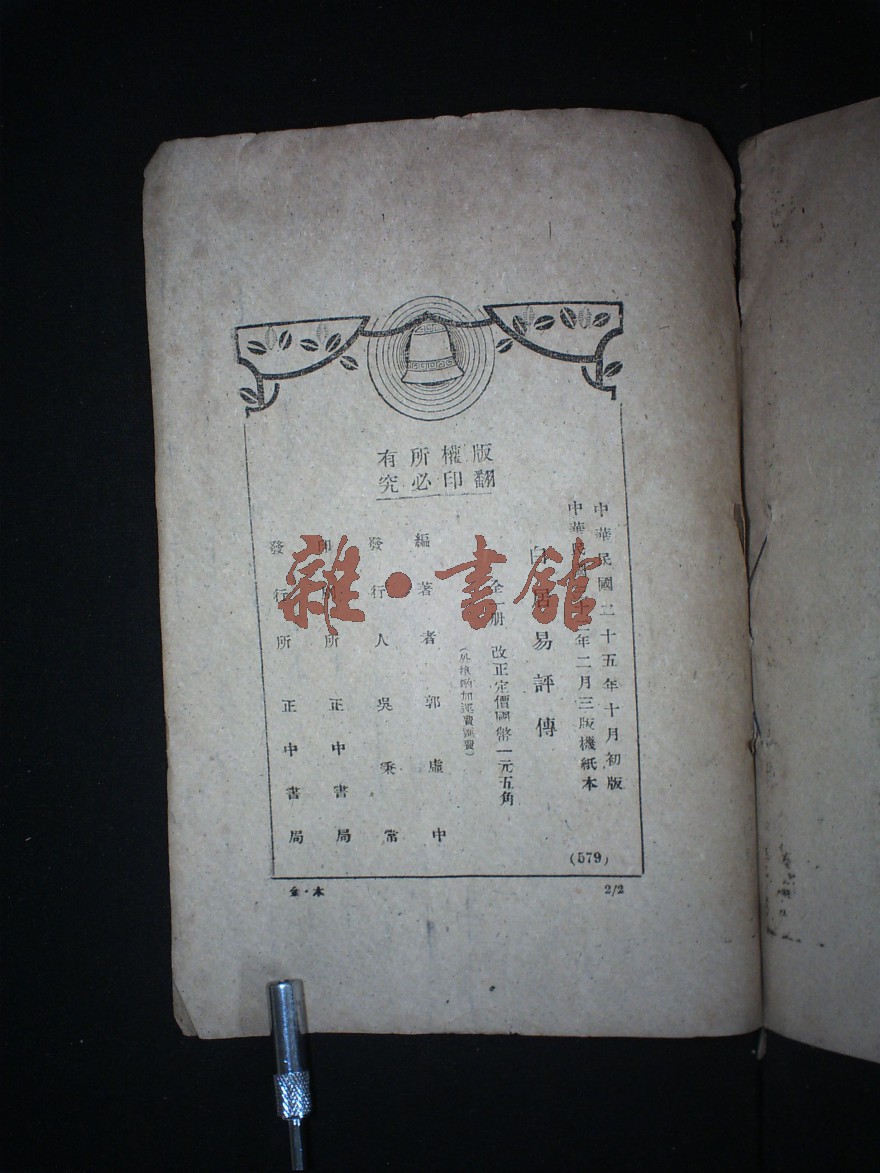 版權所有
翻印必究
中華民國二十五年十月初版
中華民國三十二年二月三版機紙本
白居易評傳
全一册 改正定價國幣一元五角
(外埠酌加運費匯費)
編著者 郭虛中
發行人 吳秉常
印刷所 正中書局
發行所 正中書局
(579)
2/2
金·本
雜·書館